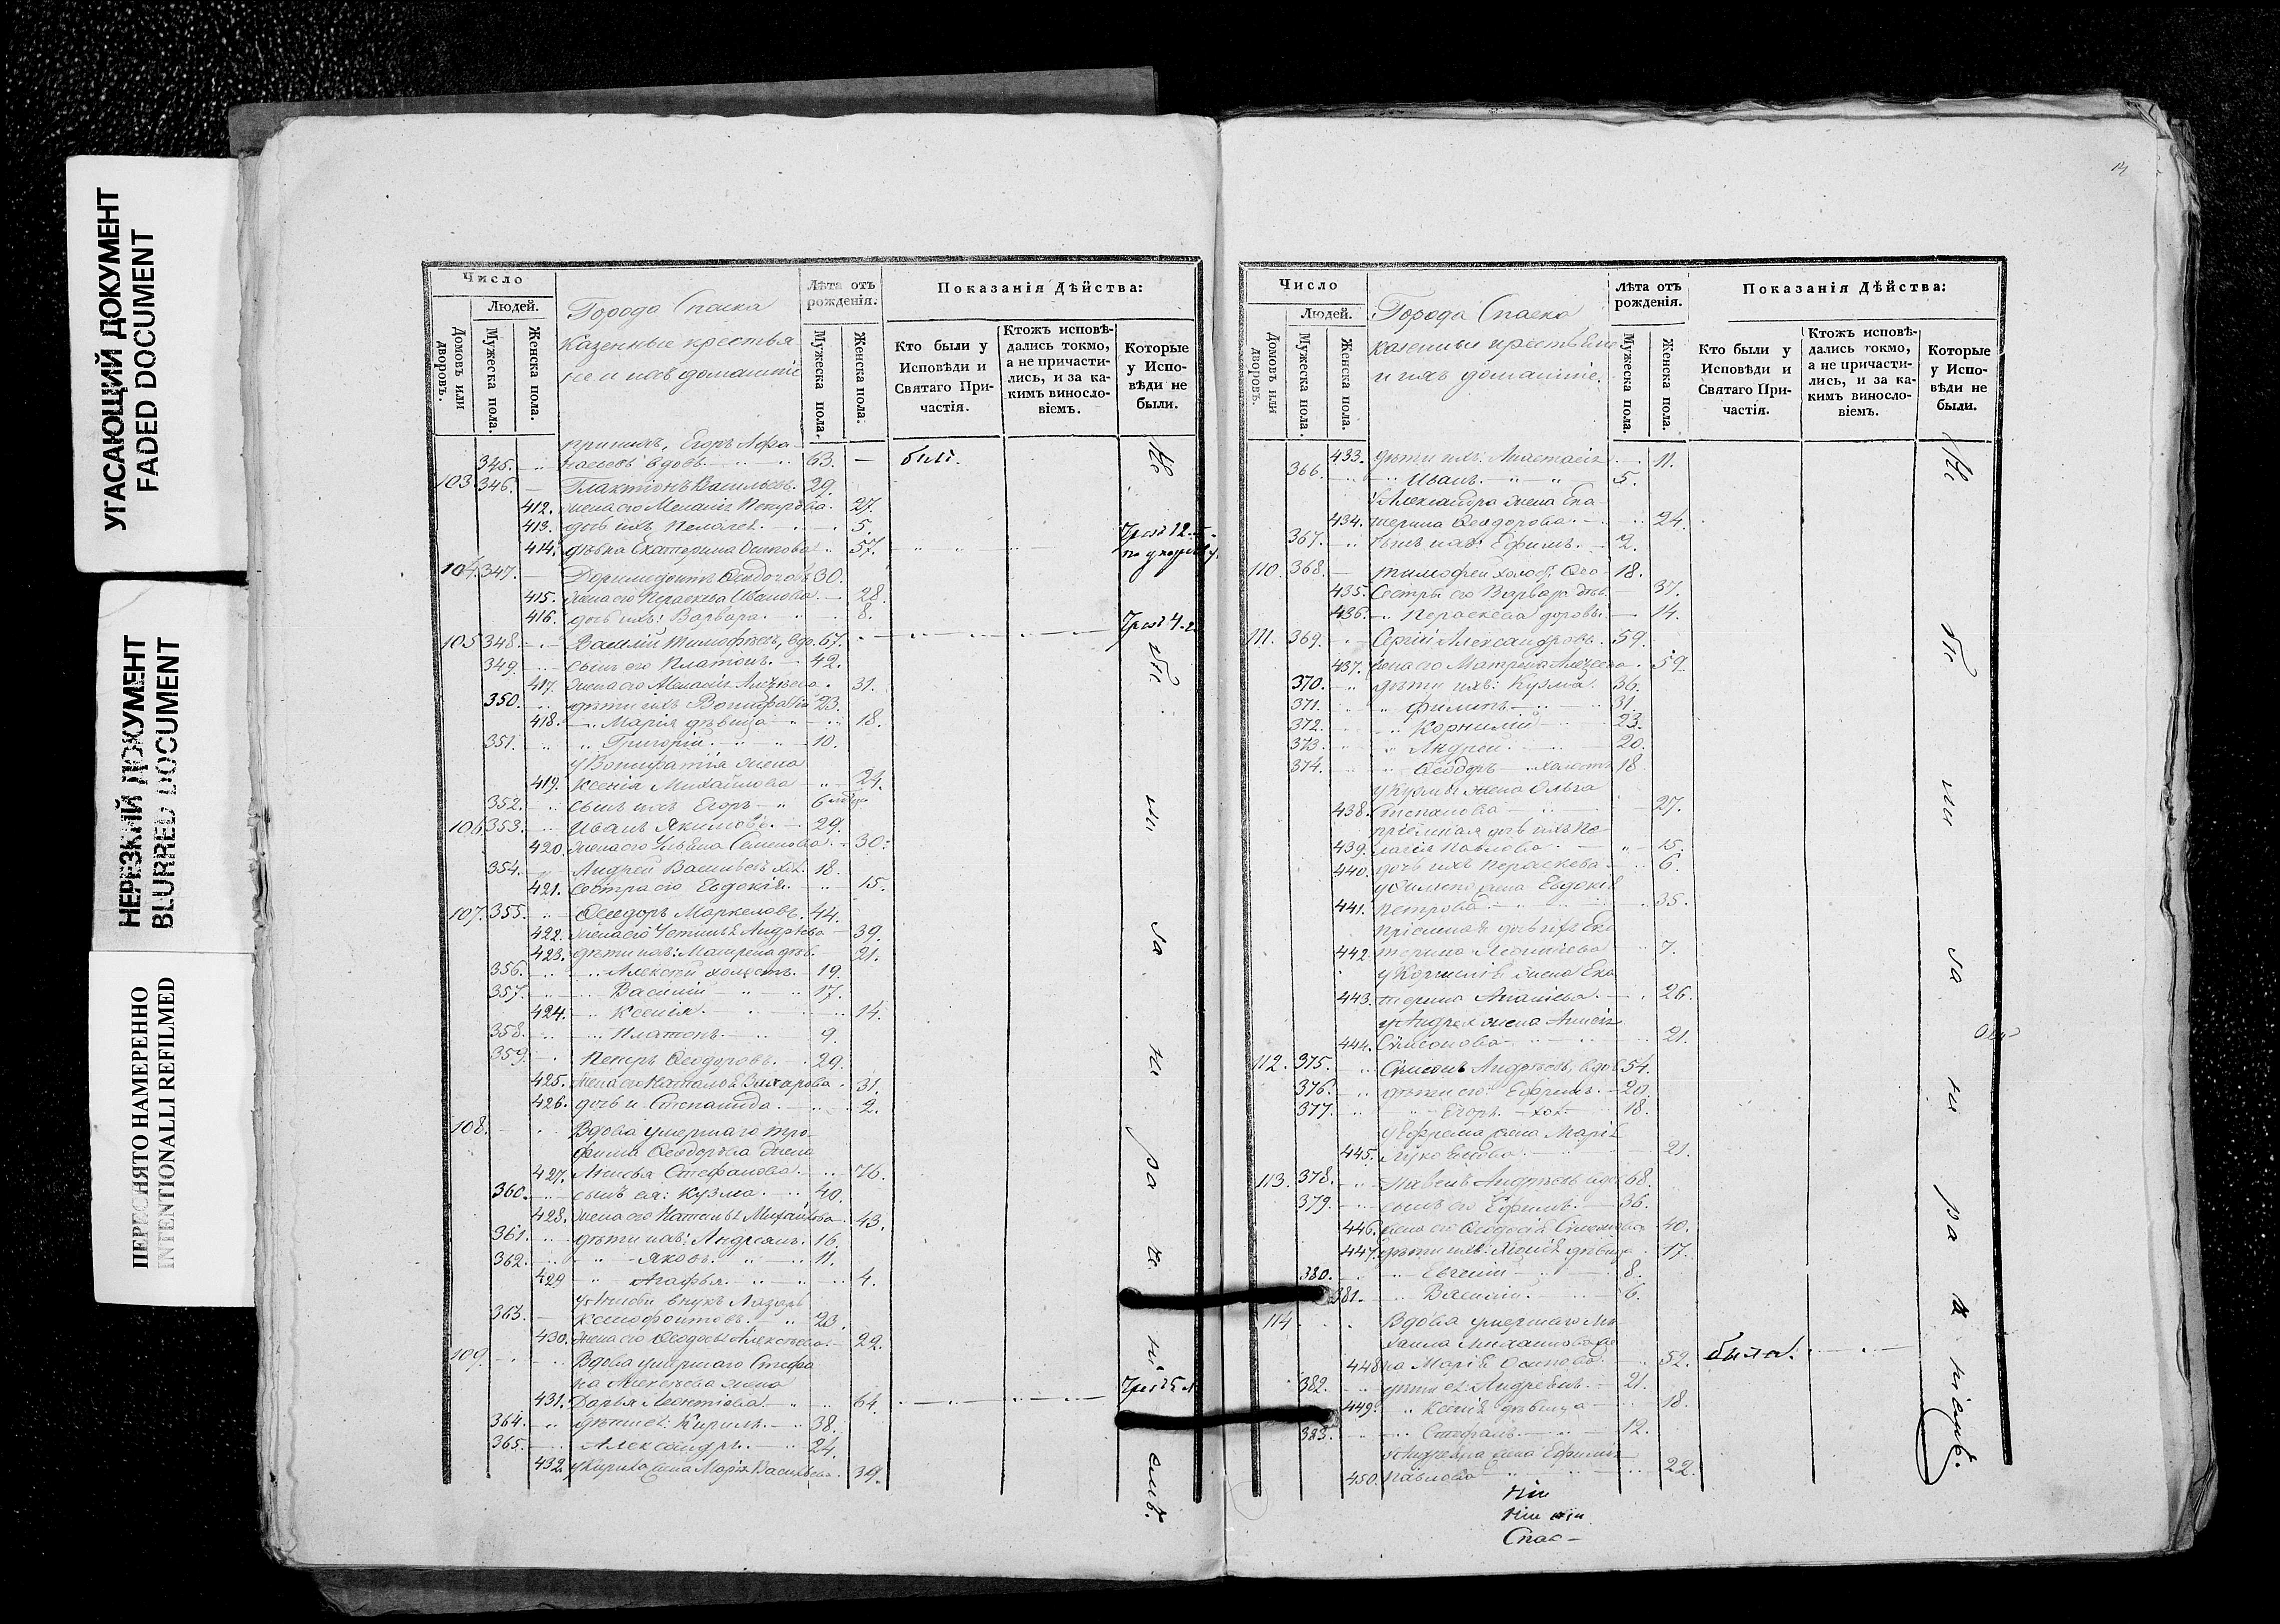 УГАСАЮЩИЙ ДОКУМЕНТ
FADED DOCUMENT
НЕРЕЗКИЙ ДОКУМЕНТ
BLURRED DOCUMENT
ПЕРЕСНЯТО НАМЕРЕННО
INTENTIONALLI REFILMED
Число
Людей.
Домовъ или дворовъ.
Мужеска пола.
Женска пола.
Города Спаска
казенные крестья
не и ихъ домашніе
Лѣта отъ рожденія.
Мужеска пола.
Женска пола.
Показанія Дѣйства:
Кто были у Исповѣди и Святаго Причастія.
Ктожъ исповѣдались токмо, а не причастились, и за какимъ винословіемъ.
Которые у Исповѣди не были.
Егоръ Афа
345. насьевъ вдовъ 63. былъ.
103. 346. Галактіонъ Васильевъ. 29.
412. жена его Меланія Петрова. 27.
413. дочь ихъ Пелагея. 5.
414. дѣвка Екатерина Осипова 57.
104. 347. Доримедонтъ Ѳеодоровъ 30.
415. жена его Параскева Иванова. 28.
416. дочь ихъ: Варвара. 8.
105 348. Василій Тимофѣевъ, вдо. 67.
349. сынъ его Платонъ. 42.
417. жена его Меланія Андреева. 31.
350. дѣти ихъ Вонифатій 23.
418. Марія дѣвица 18.
351. Григорій. 10.
у Вонифатія жена
419. Ксенія Михайлова 24.
352. сынъ ихъ Егоръ 6
106 353. Иванъ Якимовъ. 29.
420. жена его Ульяна Семенова. 30.
354. Андрей Васильевъ хол. 18.
421. сестра его Евдокія. 15.
107. 355. Ѳеодоръ Маркеловъ. 44.
422. жена его Устинья Андреева 39.
423. дѣти ихъ: Матрена дѣв. 21.
356. Алексей холостъ. 19.
357. Василій 17.
424. Ксенія. 14.
358. Платонъ. 9.
359. Петръ Ѳеодоровъ. 29.
425. жена его Наталья Захарова. 31.
426. дочь и Степанида. 2.
108. Вдова умершаго Тро
фима Ѳеодорова жена
427. Анисья Стефанова. 76.
360. сынъ ея: Кузма. 40.
428. жена его Наталья Михайлова. 43.
361. дѣти ихъ: Андреянъ. 16.
362. Яковъ. 11.
429 Агафья. 4.
у Анисьи внукъ Лазарь
363. Ксенофонтовъ. 23.
430. жена его Ѳеодосья Алексѣева. 22.
109. Вдова умершаго Стефа
на Алексѣева жена
431. Дарья Леонтіева. 64.
364. дѣти ея: Кирилъ. 38.
365. Александръ. 24.
432. у Кирила жена Марія Васильева. 39.
Не бы ли за не ра че ні емъ.
14
Число
Людей.
Домовъ или дворовъ.
Мужеска пола.
Женска пола.
Города Спаска
казенные крестьяне
и ихъ домашніе.
Лѣта отъ рожденія.
Мужеска пола.
Женска пола.
Показанія Дѣйства:
Кто были у Исповѣди и Святаго Причастія.
Ктожъ исповѣдались токмо, а не причастились, и за какимъ винословіемъ.
Которые у Исповѣди не были.
433. дѣти ихъ: Анастасія 11.
366. Иванъ. 5.
у Александра жена Ека
434. терина Ѳеодорова. 24.
367. сынъ ихъ: Ефимъ. 2.
110. 368. Тимофей холос. Ѳео 18.
435. Сестры его Варвара дѣв. 37.
436. Параскева доровы. 14.
111. 369. Сергій Александровъ. 59.
437. жена его Матрена Алексеева. 59.
370. дѣти ихъ: Кузма. 36.
371. Филипъ 31.
372. Корнилій 23.
373. Андрей. 20.
374. Ѳеодоръ холостъ 18.
у Кузмы жена Ольга
438. Степанова 27.
пріемная дочь ихъ Пе
439. лагія Павлова. 15.
440. дочь ихъ Параскева 6.
у Филипа жена Евдокія
441. Петрова 35.
пріемная дочь ихъ Ека
442. терина Леонтіева 7.
у Корнилія жена Ека
443. терина Ананіева. 26.
у Андрея жена Анисія
444. Сѵмеонова 21.
112. 375. Сѵмеонъ Андреевъ, вдов 54.
376. дѣти его: Ефремъ. 20.
377. Егоръ хол. 18.
у Ефрема жена Марія
445. Лукоянова 21.
113. 378. Андреевъ вдов 68.
379. сынъ его Ефимъ. 36.
446. жена его Ѳеодосія Сѵмеонова 40.
447. дѣти ихъ: дѣвица 17.
380. Евгеній 8.
381. Василій. 6.
114. Вдова умершаго Ми
хаила Михайлова же
448 на Марія Осипова. 52. была.
382. дѣти ея: Андреянъ. 21.
449. Ксенія дѣвица 18.
383. Стефанъ. 12.
у Андреяна жена Ефимія
450. Павлова 22.
Не бы ли за не ра че ніемъ.
Спас-